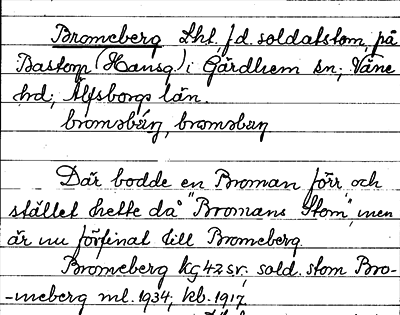 Bromeberg Lht, f.d. soldatstom, på
Bastorp (Hansg.) i Gärdhem sn; Väne
hd; Älfsborgs län.
Där bodde en Broman förr, och
stället hette då "Bromans Stom", men
är nu förfinat till Bromeberg.
Bromeberg kg 42 sv; sold. stom Bro-
-meberg ml. 1934; kb. 1917